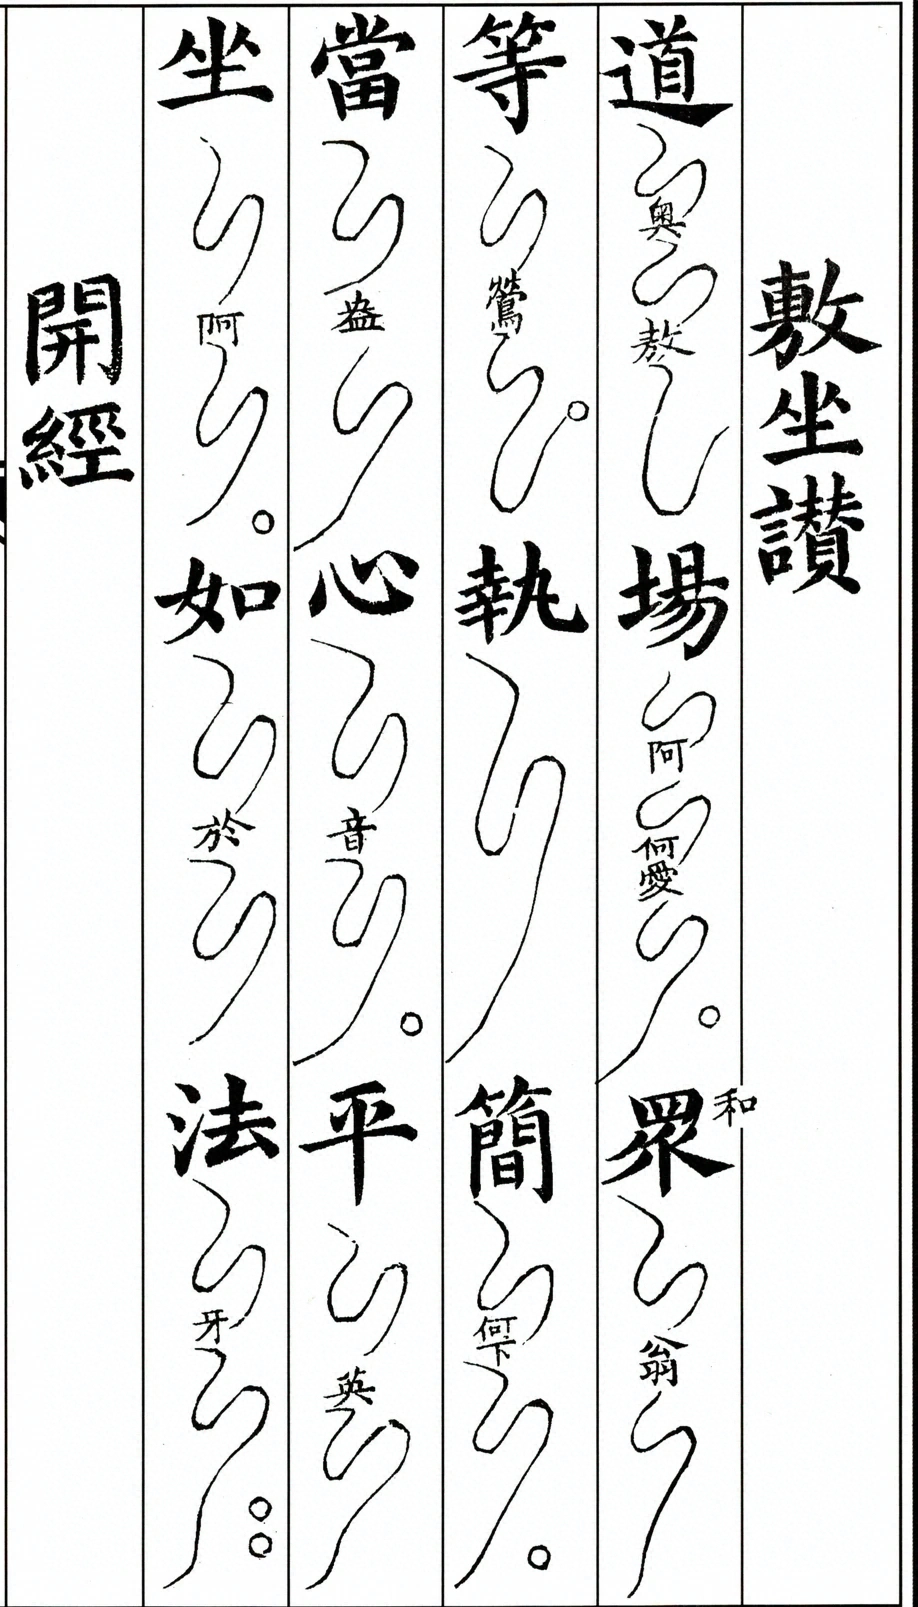 敷坐讃
道奥敖場阿何愛。眾和翁
等鶯。執簡何下。
當盎心音。平英
坐阿。如於法牙。。
開經